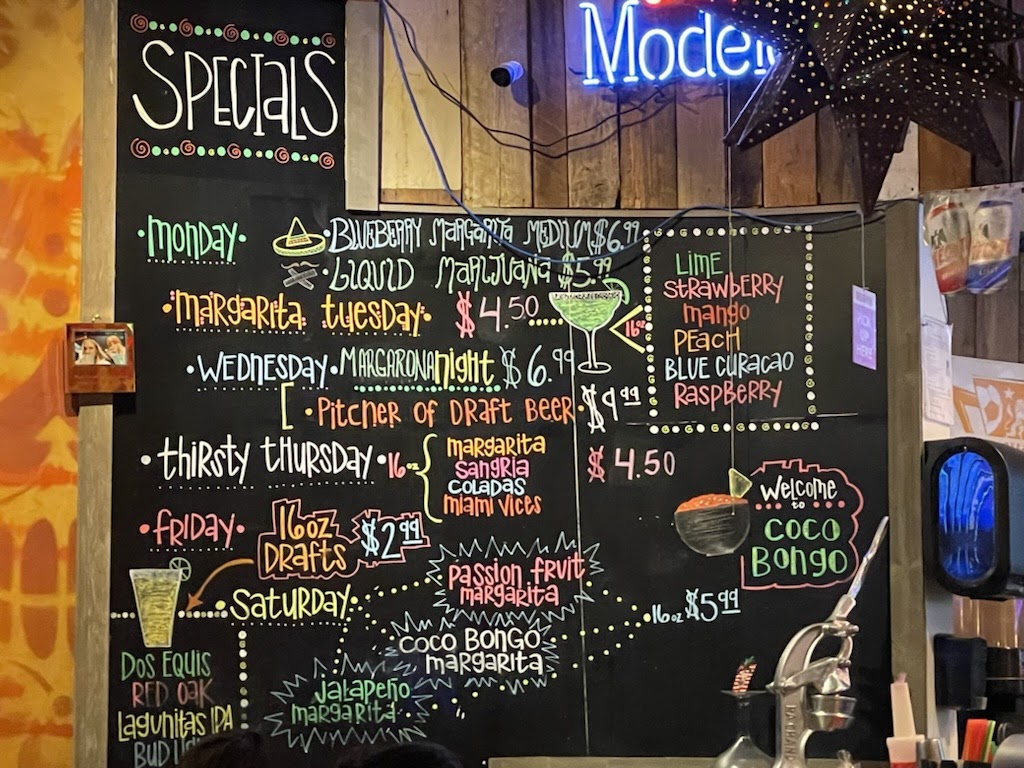 SPECIALS
Model
MONDAY
BLUEBERRY MARGARITA MEDIUM $6.99
LIQUID MARIJUANA $5.99
MARGARITA TUESDAY $4.50
16oz
LIME
STRAWBERRY
MANGO
PEACH
BLUE CURACAO
RASPBERRY
WEDNESDAY MARGARONA NIGHT $6.99
PITCHER OF DRAFT BEER $9.99
THIRSTY THURSDAY 16oz
MARGARITA
SANGRIA
COLADAS
MIAMI VICES
$4.50
FRIDAY
16oz
DRAFTS
$2.99
WELCOME
to
COCO
BONGO
SATURDAY
PASSION FRUIT
MARGARITA
COCO BONGO
MARGARITA
JALAPEÑO
MARGARITA
16oz $5.99
DOS EQUIS
RED OAK
LAGUNITAS IPA
BUD